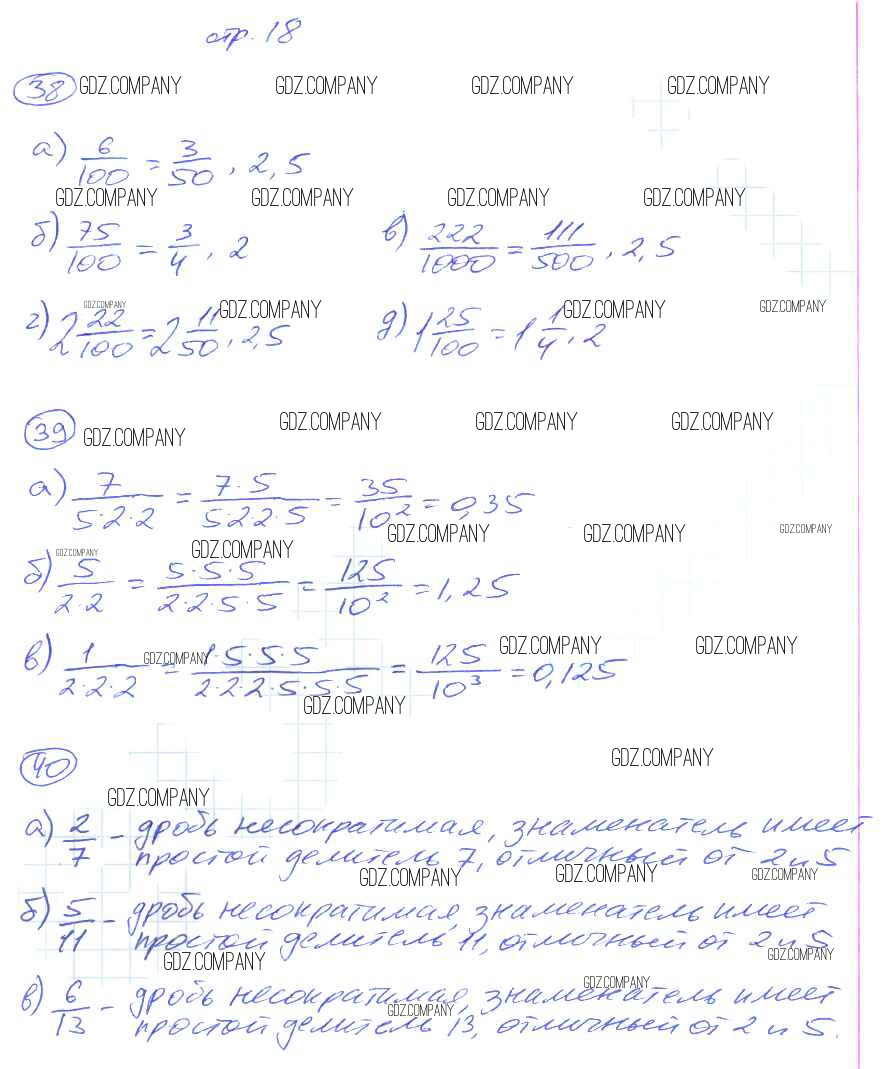 стр. 18
38 GDZ.COMPANY GDZ.COMPANY GDZ.COMPANY GDZ.COMPANY
а) 6/100 = 3/50, 2, 5
GDZ.COMPANY GDZ.COMPANY GDZ.COMPANY GDZ.COMPANY
б) 75/100 = 3/4, 2 в) 222/1000 = 111/500, 2, 5
GDZ.COMPANY GDZ.COMPANY GDZ.COMPANY GDZ.COMPANY
г) 2 22/100 = 2 11/50, 2,5 д) 1 25/100 = 1 1/4, 2
39 GDZ.COMPANY GDZ.COMPANY GDZ.COMPANY GDZ.COMPANY
а) 7/(5·2·2) = (7·5)/(5·2·2·5) = 35/10² = 0,35
GDZ.COMPANY GDZ.COMPANY GDZ.COMPANY GDZ.COMPANY GDZ.COMPANY
б) 5/(2·2) = (5·5·5)/(2·2·5·5) = 125/10² = 1,25
GDZ.COMPANY GDZ.COMPANY GDZ.COMPANY
в) 1/(2·2·2) = (1·5·5·5)/(2·2·2·5·5·5) = 125/10³ = 0,125
GDZ.COMPANY
40 GDZ.COMPANY
GDZ.COMPANY
а) 2/7 – дробь несократимая, знаменатель имеет
простой делитель 7, отличный от 2 и 5
GDZ.COMPANY GDZ.COMPANY GDZ.COMPANY
б) 5/11 – дробь несократимая, знаменатель имеет
простой делитель 11, отличный от 2 и 5
GDZ.COMPANY GDZ.COMPANY
в) 6/13 – дробь несократимая, знаменатель имеет
GDZ.COMPANY GDZ.COMPANY
простой делитель 13, отличный от 2 и 5.